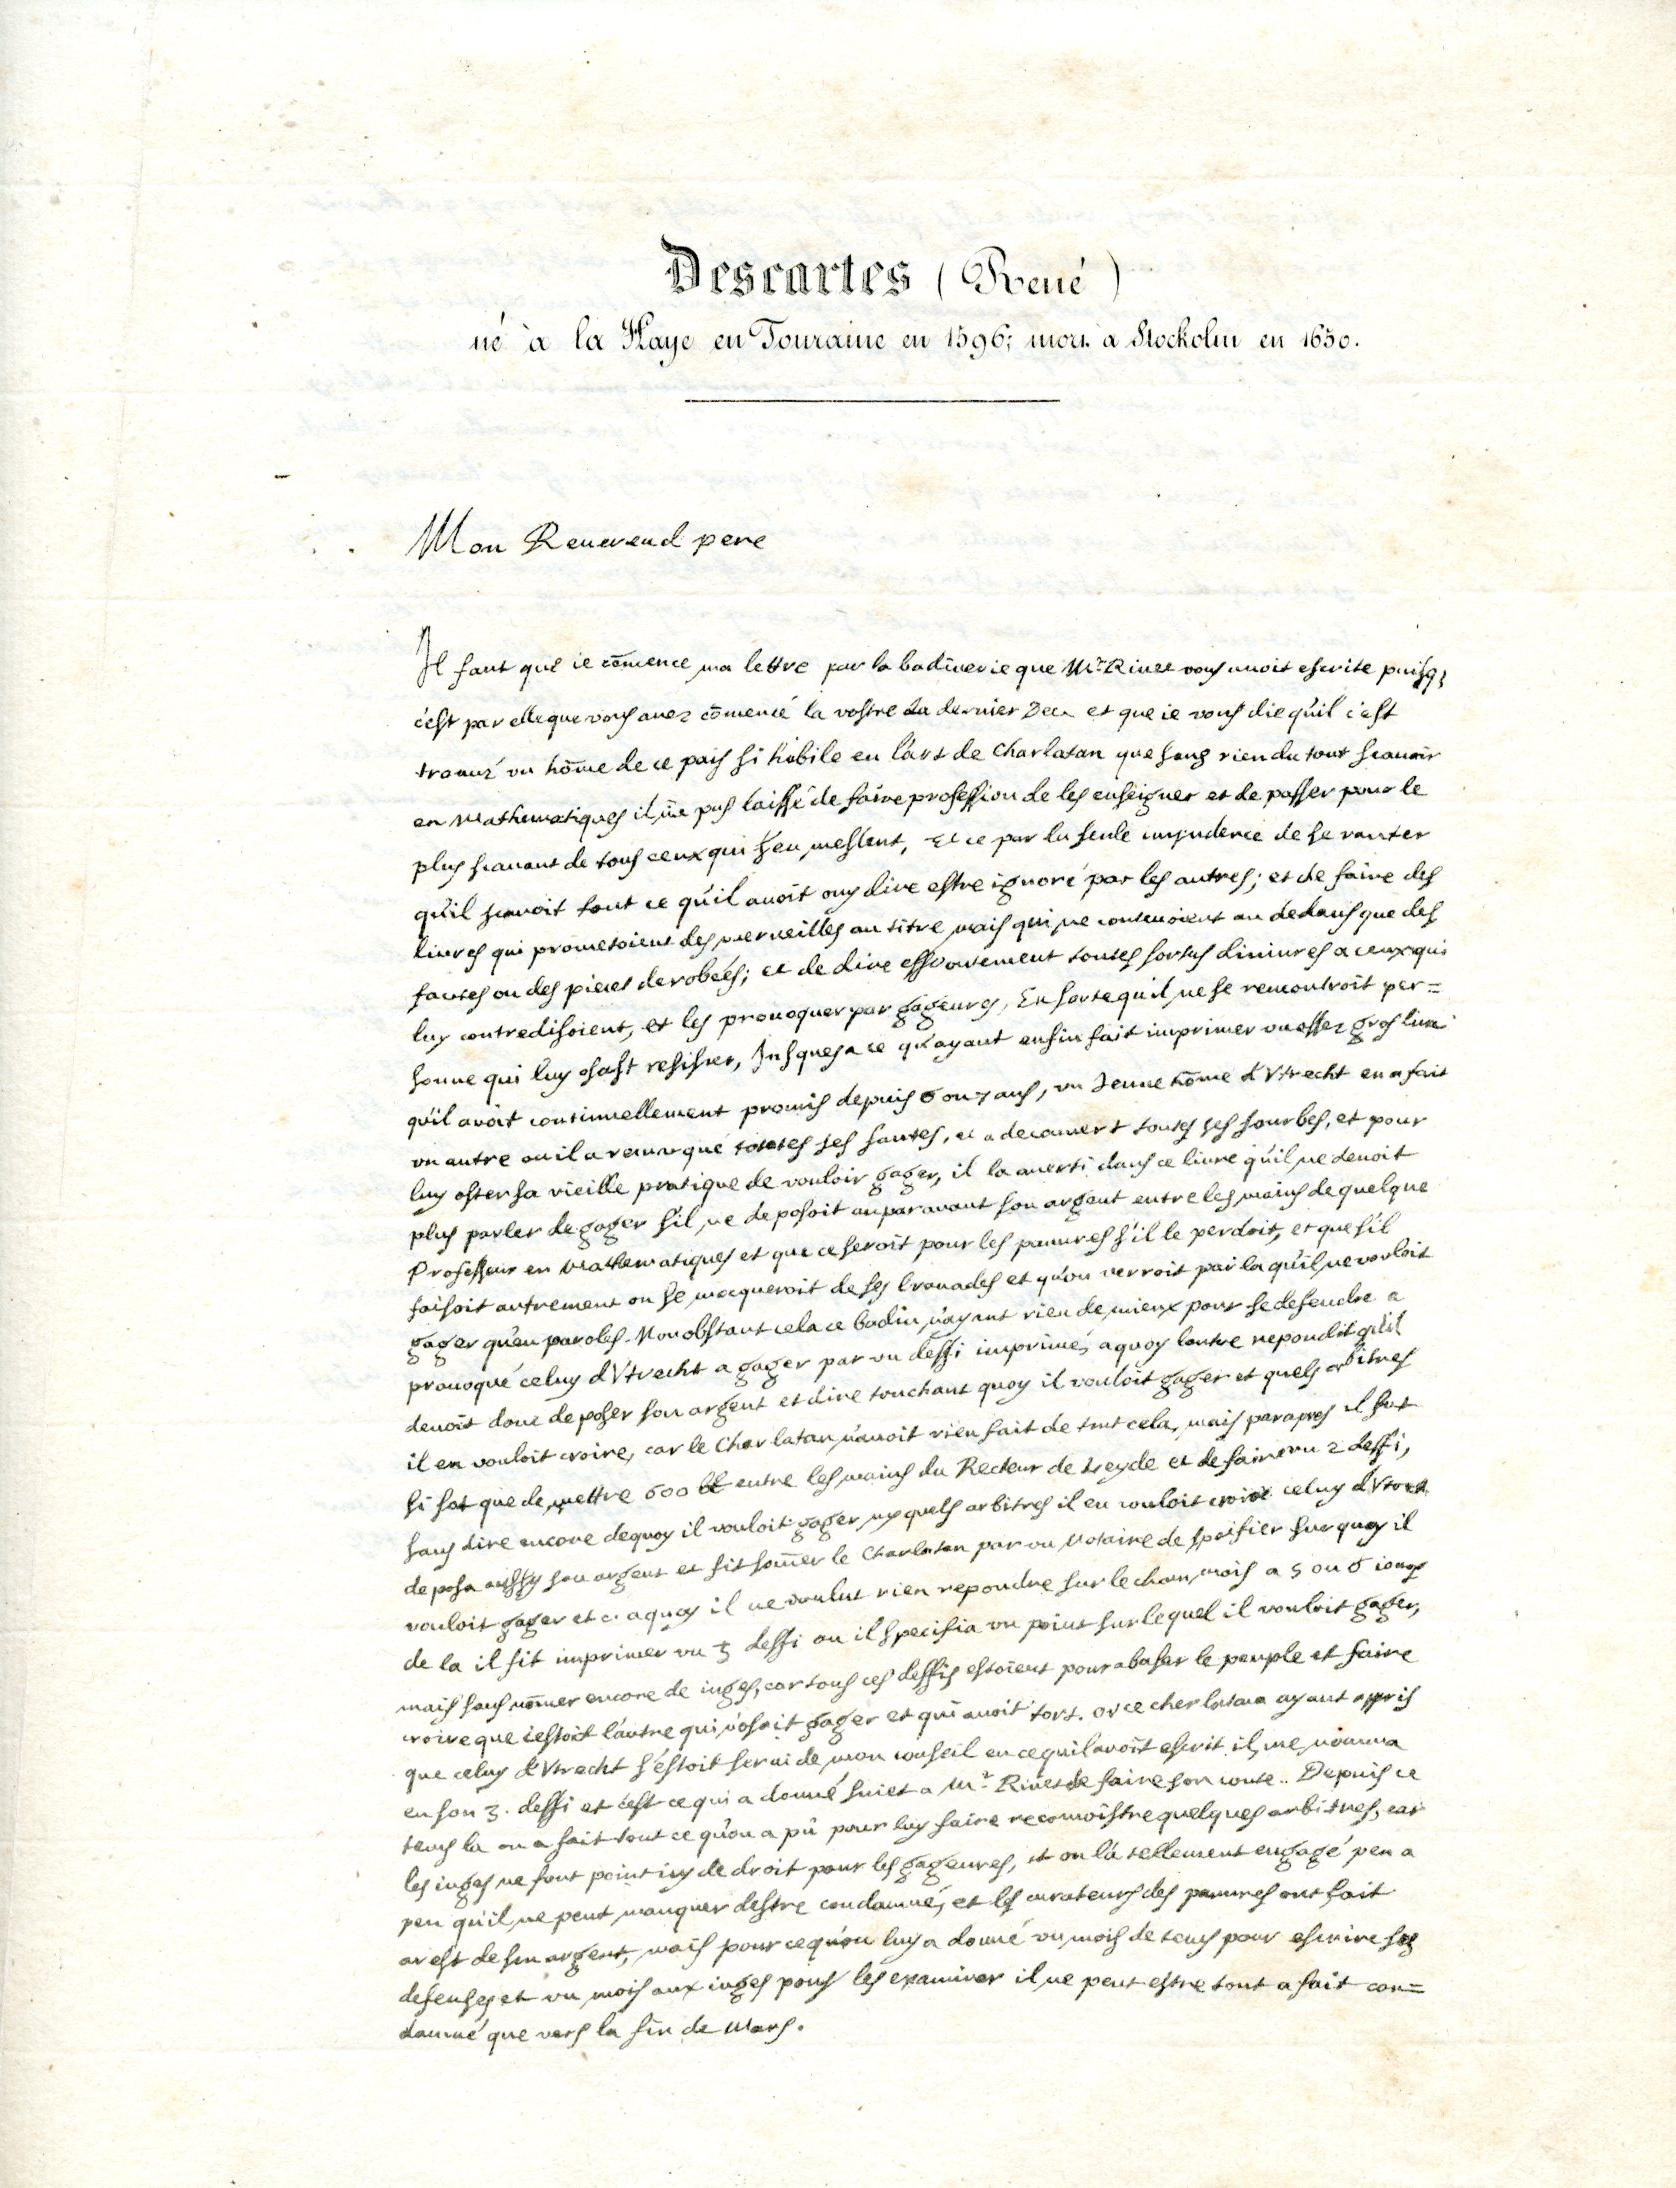 Descartes (René)
né à la Haye en Touraine en 1596; mort à Stockolm en 1650.
Mon Reuerend pere
Il faut que ie cõmence ma lettre par la badinerie que Mr Riuet vous auoit escrite puisq;
c'est par elle que vous auez cõmencé la vostre du dernier Dec. et que ie vous die qu'il s'est
trouué vn hõme de ce païs si habile en l'art de Charlatan que sans rien du tout sçauoir
en Mathematiques il n'a pas laissé de faire profession de les enseigner et de passer pour le
plus sçauant de tous ceux qui s'en meslent, Et ce par la seule impudence de se vanter
qu'il sçauoit tout ce qu'il auoit ouy dire estre ignoré par les autres; et de faire des
liures qui prometoient des merueilles au titre mais qui ne contenoient au dedans que des
fautes ou des pieces derobées; et de dire effrontement toutes sortes d'iniures a ceux qui
luy contredisoient, et les prouoquer par gageures, En sorte qu'il ne se rencontroit per=
sonne qui luy osast resister, Iusques a ce qu'ayant enfin fait imprimer vn assez gros liure
qu'il auoit continuellement promis depuis 6 ou 7 ans, vn Ieune hõme d'Vtrecht en a fait
vn autre ou il a remarqué toutes ses fautes, et a decouuert toutes ses fourbes, et pour
luy oster sa vieille pratique de vouloir gager, il l'a auerti dans ce liure qu'il ne deuoit
plus parler de gager s'il ne deposoit auparauant son argent entre les mains de quelque
Professeur en Mathematiques et que ce seroit pour les pauures s'il le perdoit, et que s'il
faisoit autrement on se mocqueroit de ses brauades et qu'on verroit par la qu'il ne vouloit
gager qu'en paroles. Nonobstant cela ce badin n'ayant rien de mieux pour se defendre a
prouoqué celuy d'Vtrecht a gager par vn deffi imprimé, a quoy l'autre repondit qu'il
deuoit donc deposer son argent et dire touchant quoy il vouloit gager et quels arbitres
il en vouloit croire, car le Charlatan n'auoit rien fait de tout cela, mais par apres il fut
si sot que de mettre 600 ℔ entre les mains du Recteur de Leyde et de faire vn 2 deffi,
sans dire encore de quoy il vouloit gager ny quels arbitres il en vouloit croire celuy d'Vtrect
deposa aussy son argent et fit som̃er le Charlatan par vn Notaire de specifier sur quoy il
vouloit gager et c. a quoy il ne voulut rien repondre sur le cham, mais a 5 ou 6 iours
de la il fit imprimer vn 3 deffi ou il specifia vn point sur lequel il vouloit gager,
mais sans nõmer encore de iuges, car tous ces deffis estoient pour abuser le peuple et faire
croire que c'estoit l'autre qui n'osoit gager et qui auoit tort. or ce charlatan ayant appris
que celuy d'Vtrecht s'estoit serui de mon conseil en ce qu'il auoit escrit il me nomma
en son 3. deffi et c'est ce qui a donné suiet a Mr Riuet de faire son conte. Depuis ce
tems la on a fait tout ce qu'on a pû pour luy faire reconnoistre quelques arbitres, car
les iuges ne font point icy de droit pour les gageures, et on l'a tellement engagé peu a
peu qu'il ne peut manquer d'estre condamné, et les curateurs des pauures ont fait
arest de son argent, mais pource qu'on luy a donné vn mois de tems pour escrire ses
defenses et vn mois aux iuges pour les examiner il ne peut estre tout a fait con=
damné que vers la fin de Mars.